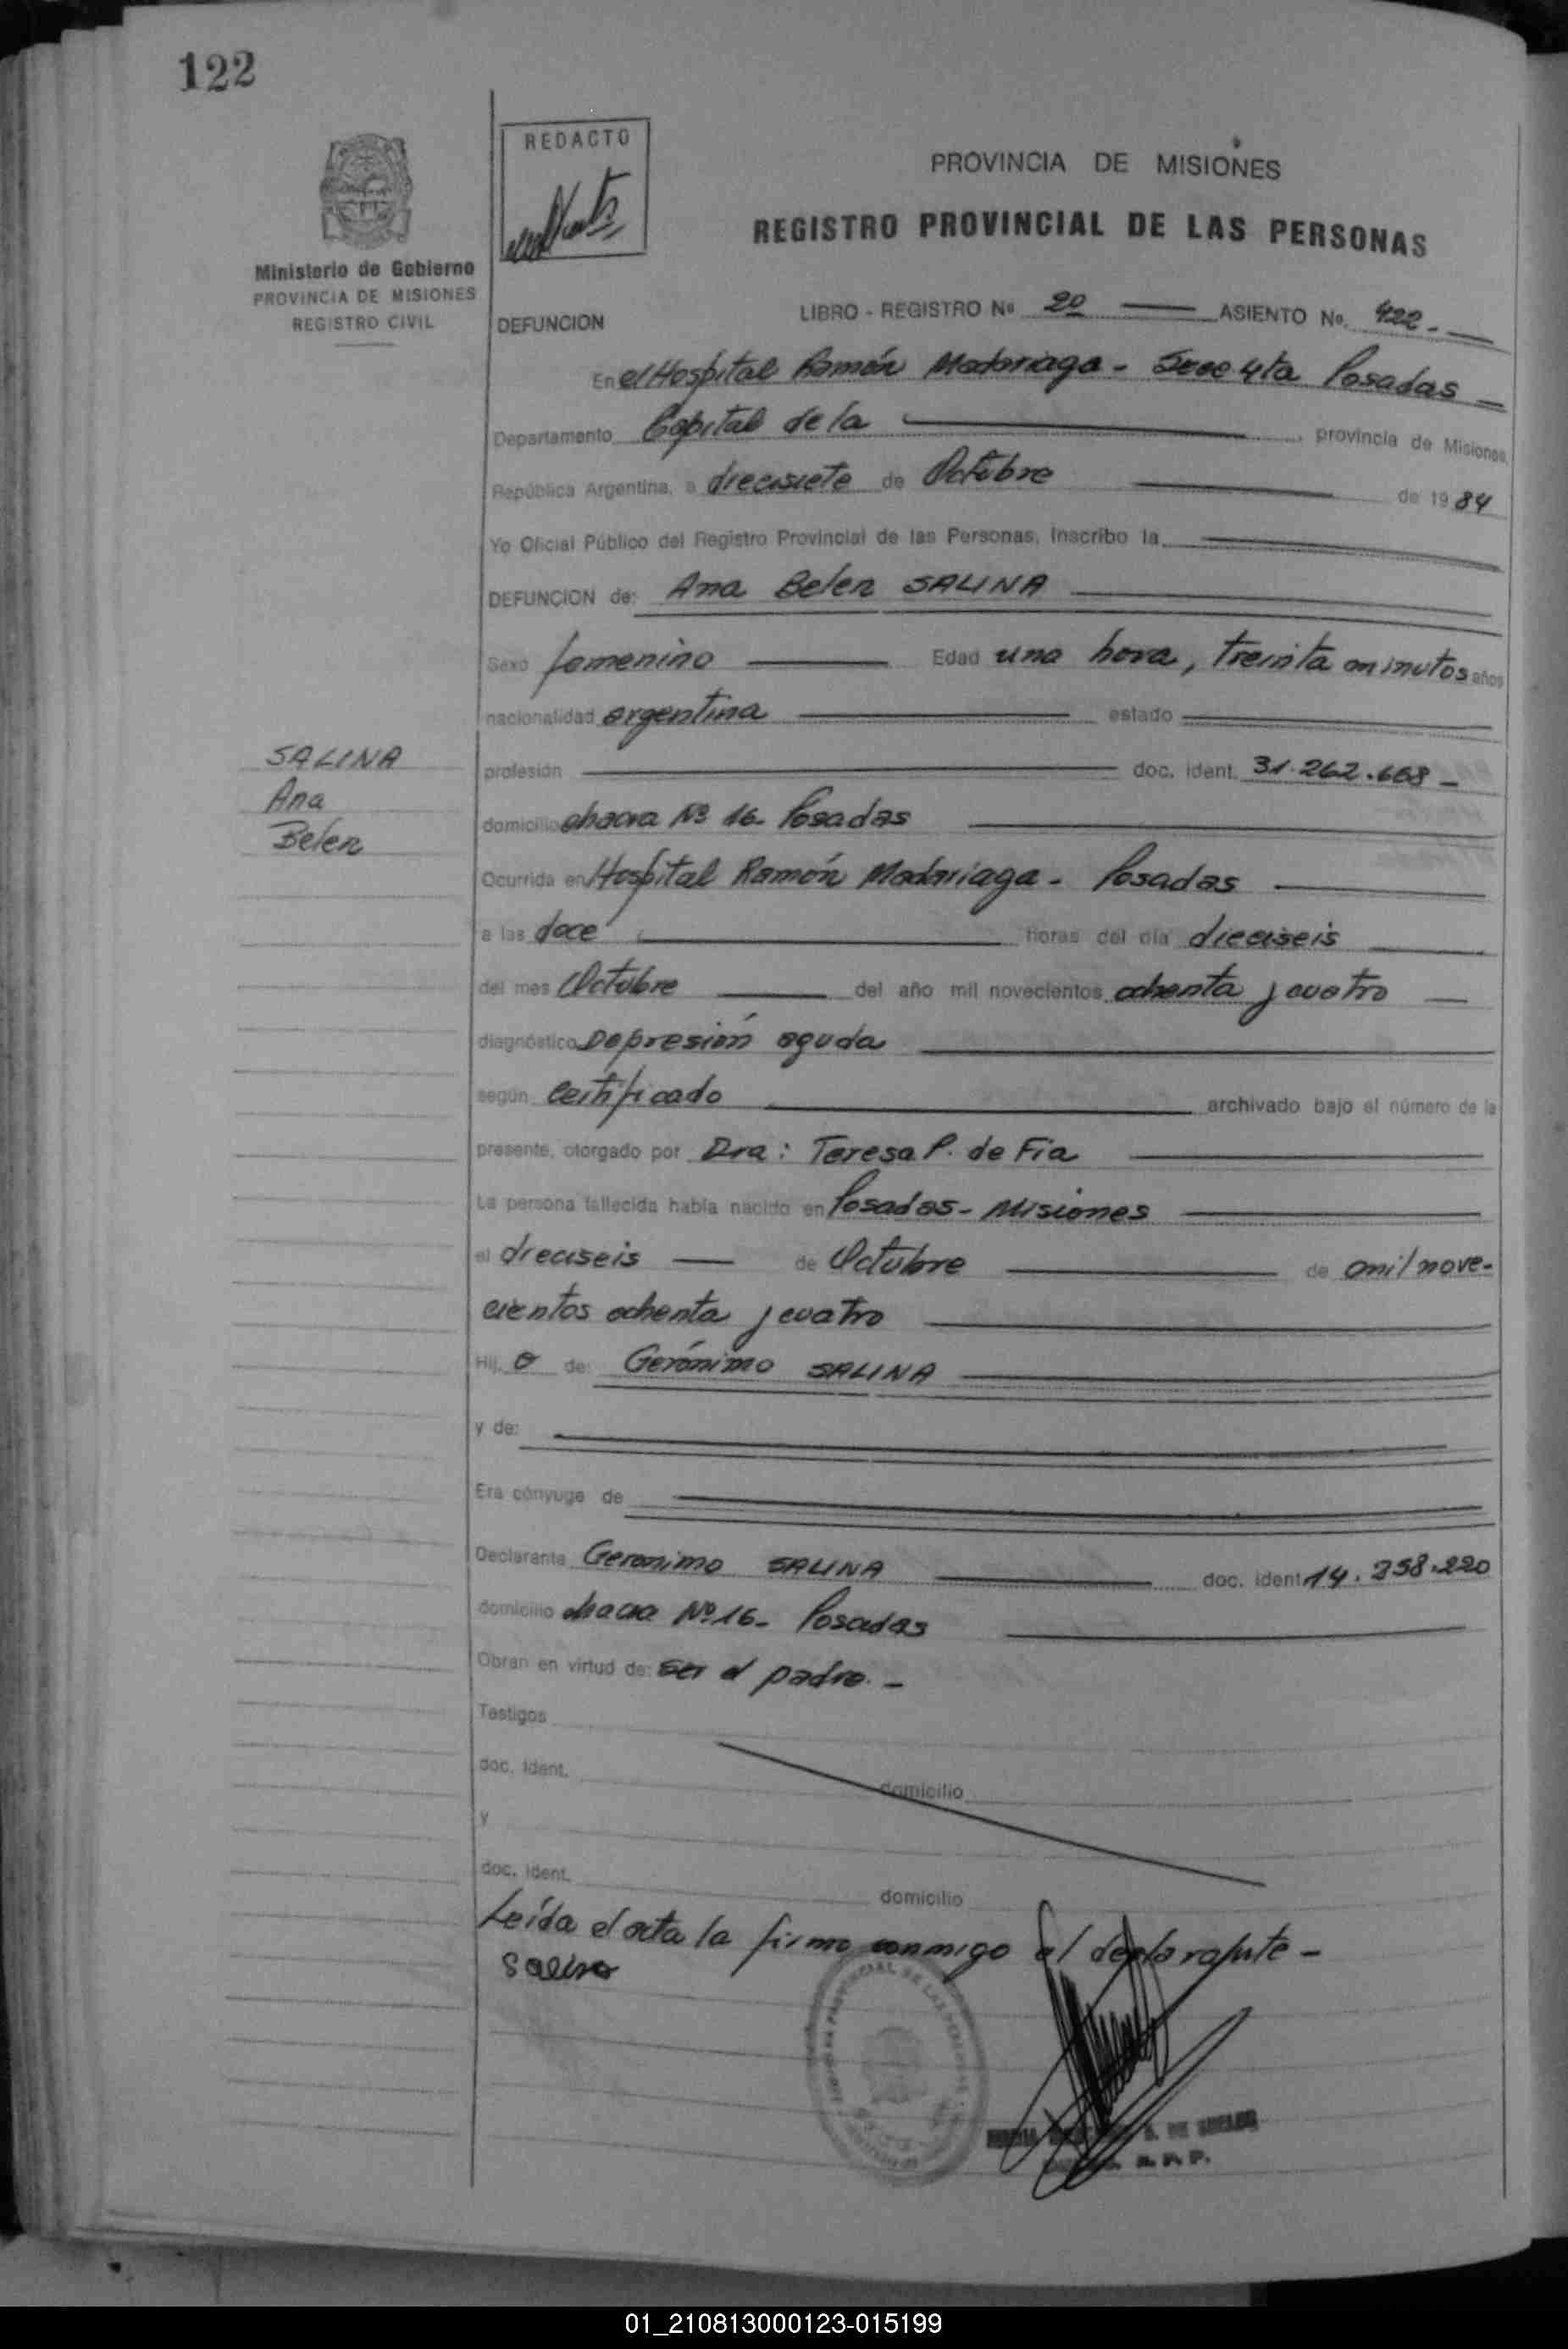 122
REDACTO
PROVINCIA DE MISIONES
REGISTRO PROVINCIAL DE LAS PERSONAS
Ministerio de Gobierno
PROVINCIA DE MISIONES
REGISTRO CIVIL
DEFUNCION
LIBRO - REGISTRO Nº 20 ASIENTO Nº 422.
En el Hospital Ramón Madariaga - Secc 4ta Posadas
Departamento Capital de la provincia de Misiones,
República Argentina, a diecisiete de Octubre de 1984
Yo Oficial Público del Registro Provincial de las Personas, Inscribo la
DEFUNCION de: Ana Belen SALINA
Sexo femenino Edad una hora, treinta minutos años
nacionalidad argentina estado
SALINA
Ana
Belen
profesión doc. ident. 31.262.668 -
domicilio chacra Nº 16. Posadas
Ocurrida en Hospital Ramón Madariaga - Posadas
a las doce horas del día dieciseis
del mes Octubre del año mil novecientos ochenta y cuatro
diagnóstico Depresión aguda
según certificado archivado bajo el número de la
presente, otorgado por Dra: Teresa P. de Fia
La persona fallecida había nacido en Posadas - Misiones
el dieciseis de Octubre de mil nove-
cientos ochenta y cuatro
Hij a de: Gerónimo SALINA
y de:
Era cónyuge de
Declarante Geronimo SALINA doc. ident. 14.258.220
domicilio chacra Nº 16 - Posadas
Obran en virtud de: ser el padre. -
Testigos
doc. ident. domicilio
y
doc. ident. domicilio
Leída el acta la firma conmigo el declarante -
Salina
01_210813000123-015199